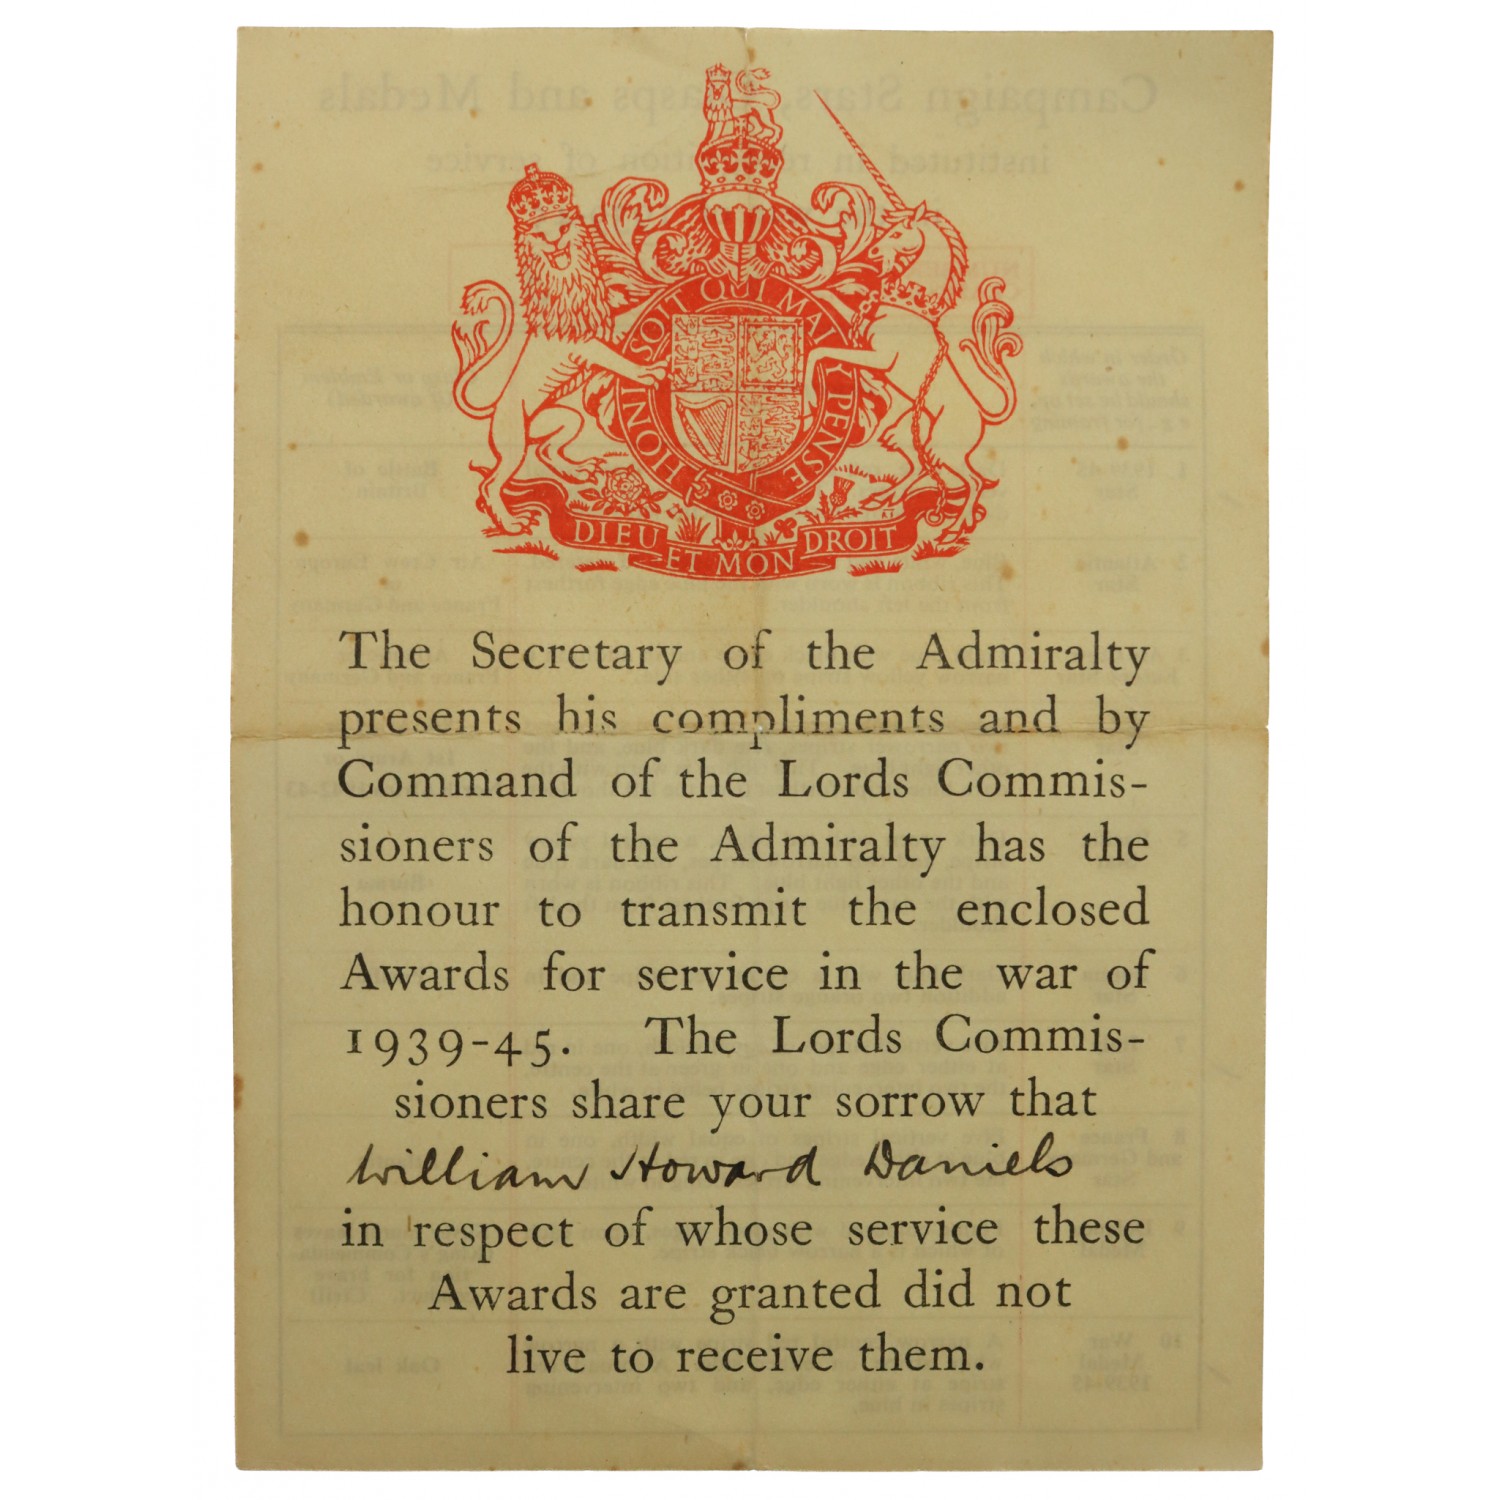 HONI SOIT QUI MAL Y PENSE
DIEU ET MON DROIT
The Secretary of the Admiralty
presents his compliments and by
Command of the Lords Commis-
sioners of the Admiralty has the
honour to transmit the enclosed
Awards for service in the war of
1939-45. The Lords Commis-
sioners share your sorrow that
William Howard Daniels
in respect of whose service these
Awards are granted did not
live to receive them.